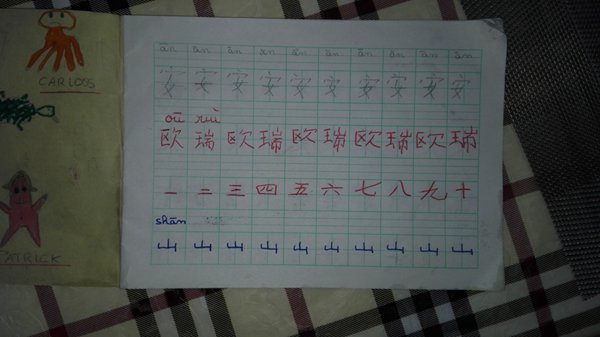 CARLOOS
PATRICK
ān ān ān ān ān ān ān ān ān ān
安 安 安 安 安 安 安 安 安 安
oū ruì
欧 瑞 欧 瑞 欧 瑞 欧 瑞 欧 瑞
一 二 三 四 五 六 七 八 九 十
shān
山 山 山 山 山 山 山 山 山 山